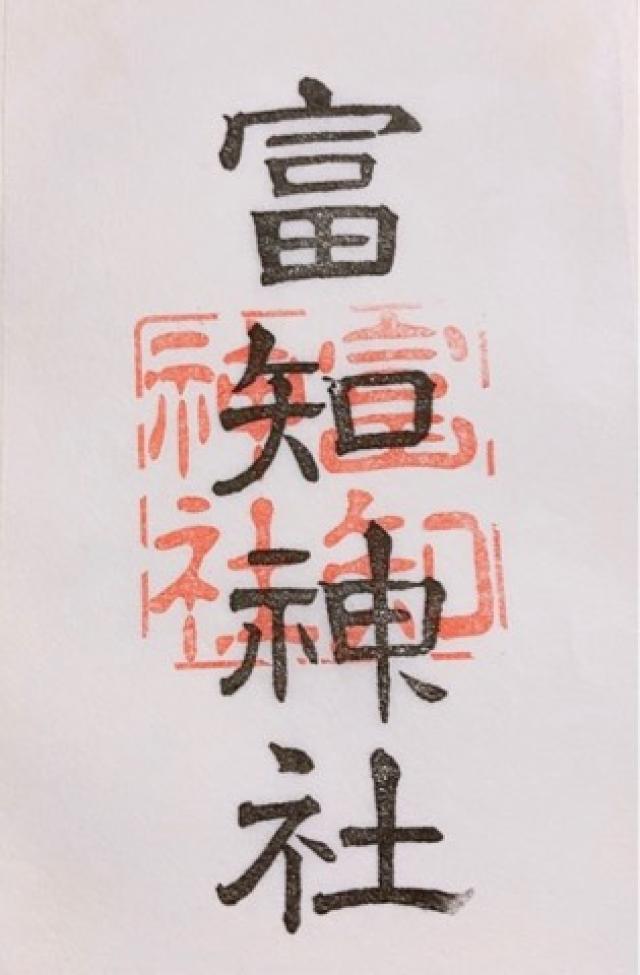 富知神社
富知
神社